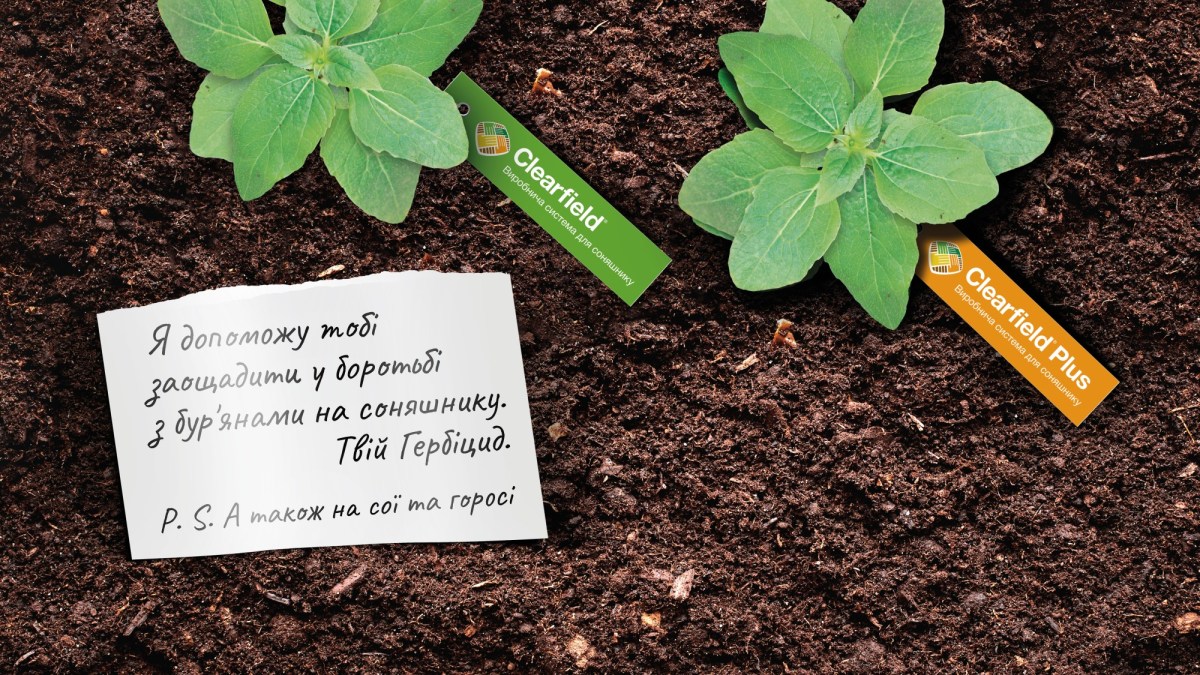 Clearfield®
Виробнича система для соняшнику
Clearfield® Plus
Виробнича система для соняшнику
Я допоможу тобі
заощадити у боротьбі
з бур'янами на соняшнику.
Твій Гербіцид.
P. S. А також на сої та горосі